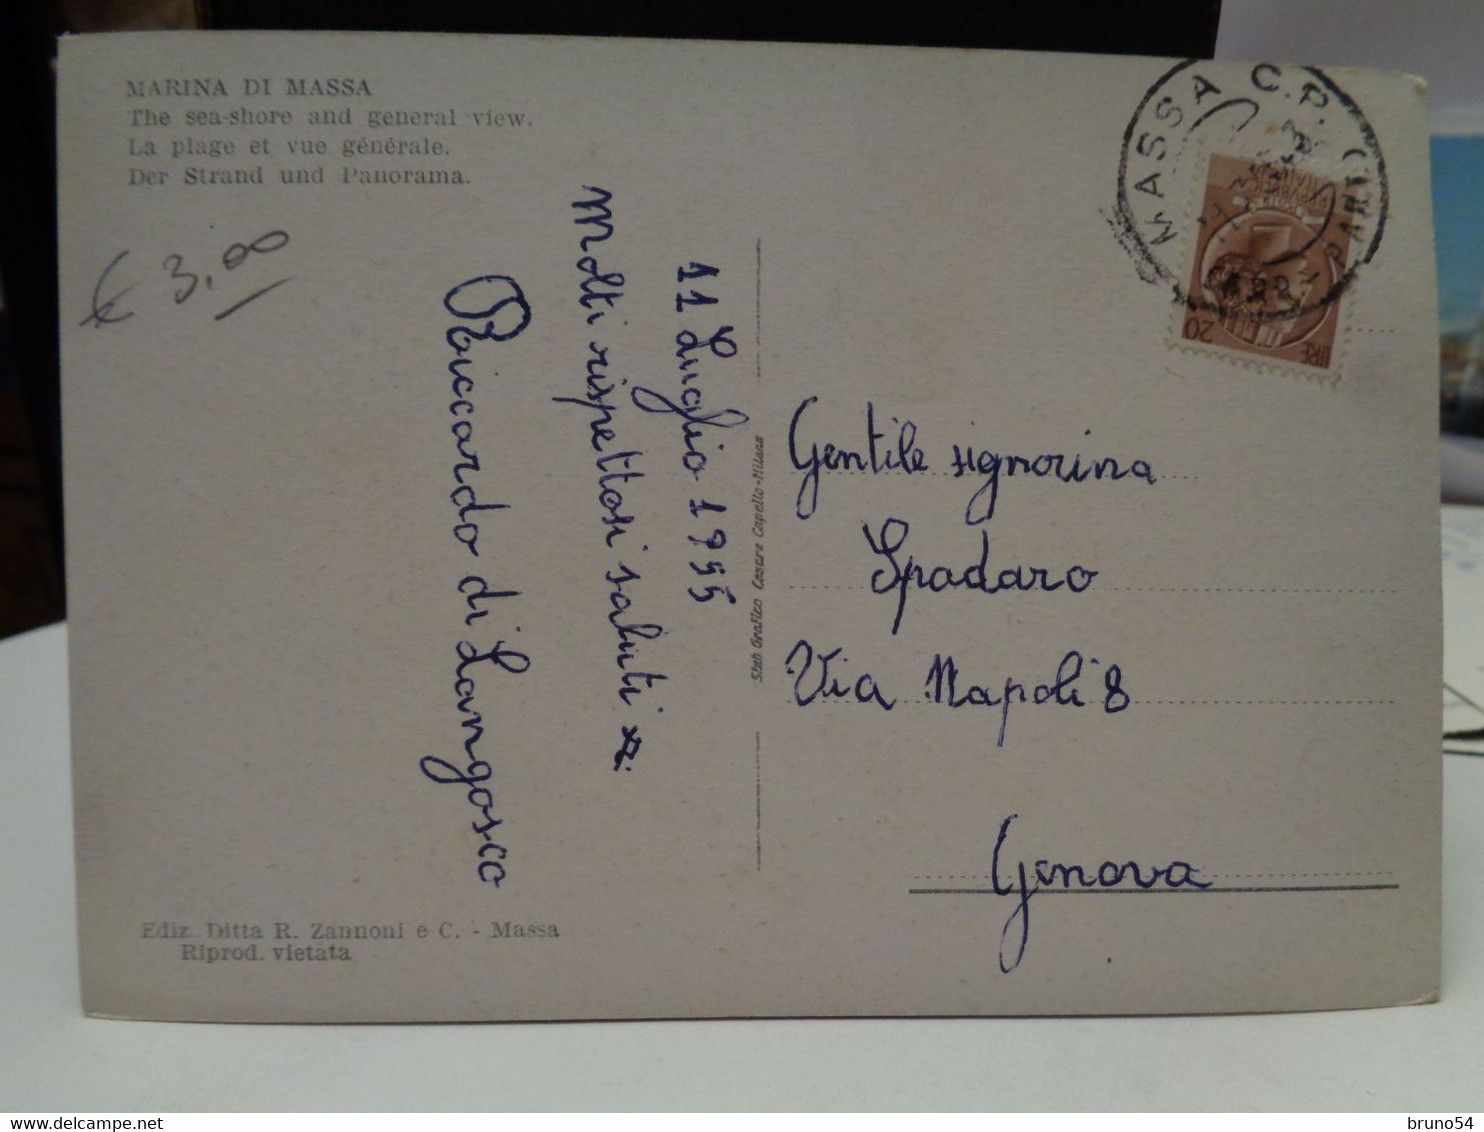 MARINA DI MASSA
The sea-shore and general view.
La plage et vue générale.
Der Strand und Panorama.
€ 3,00
11 Luglio 1955
Molti rispettosi saluti
Riccardo di Langosco
Ediz. Ditta R. Zannoni e C. - Massa
Riprod. vietata
Stab Grafico Cesare Capello-Milano
MASSA C.P.
LIRE 20
Gentile signorina
Spadaro
Via Napoli 8
Genova
bruno54